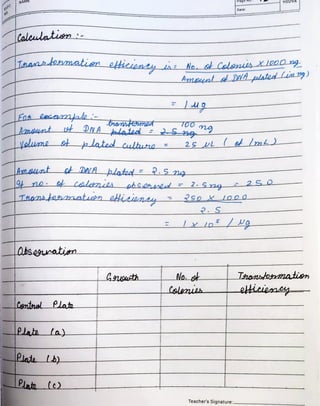 Calculation :-
Transformation efficiency is = No. of Colonies X 1000 ng
Amount of DNA plated (in ng)
= 1 µg
For example :-
Amount of DNA transformed = 100 ng
plated = 2.5 ng
Volume of plated culture = 25 µL ( of 1mL )
Amount of DNA plated = 2.5 ng
If no. of colonies observed = 2.5 ng = 250
Transformation efficiency = 250 X 1000
2.5
= 1 x 10⁵ / µg
Observation
Growth No. of Transformation
Colonies efficiency
Control Plate
Plate (a)
Plate (b)
Plate (c)
Teacher's Signature: